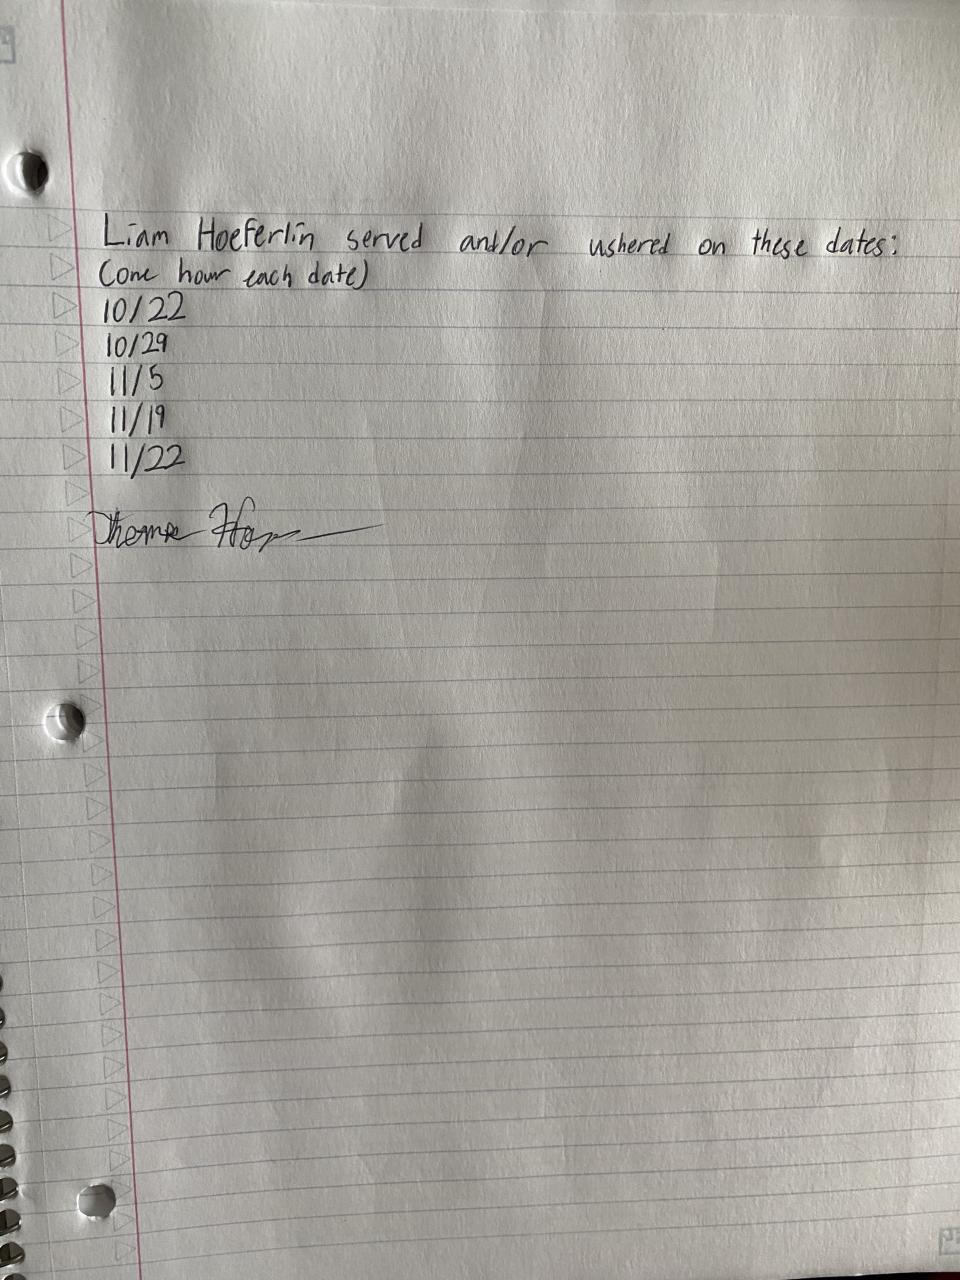 Liam Hoeferlin served and/or ushered on these dates:
(one hour each date)
10/22
10/29
11/5
11/19
11/22